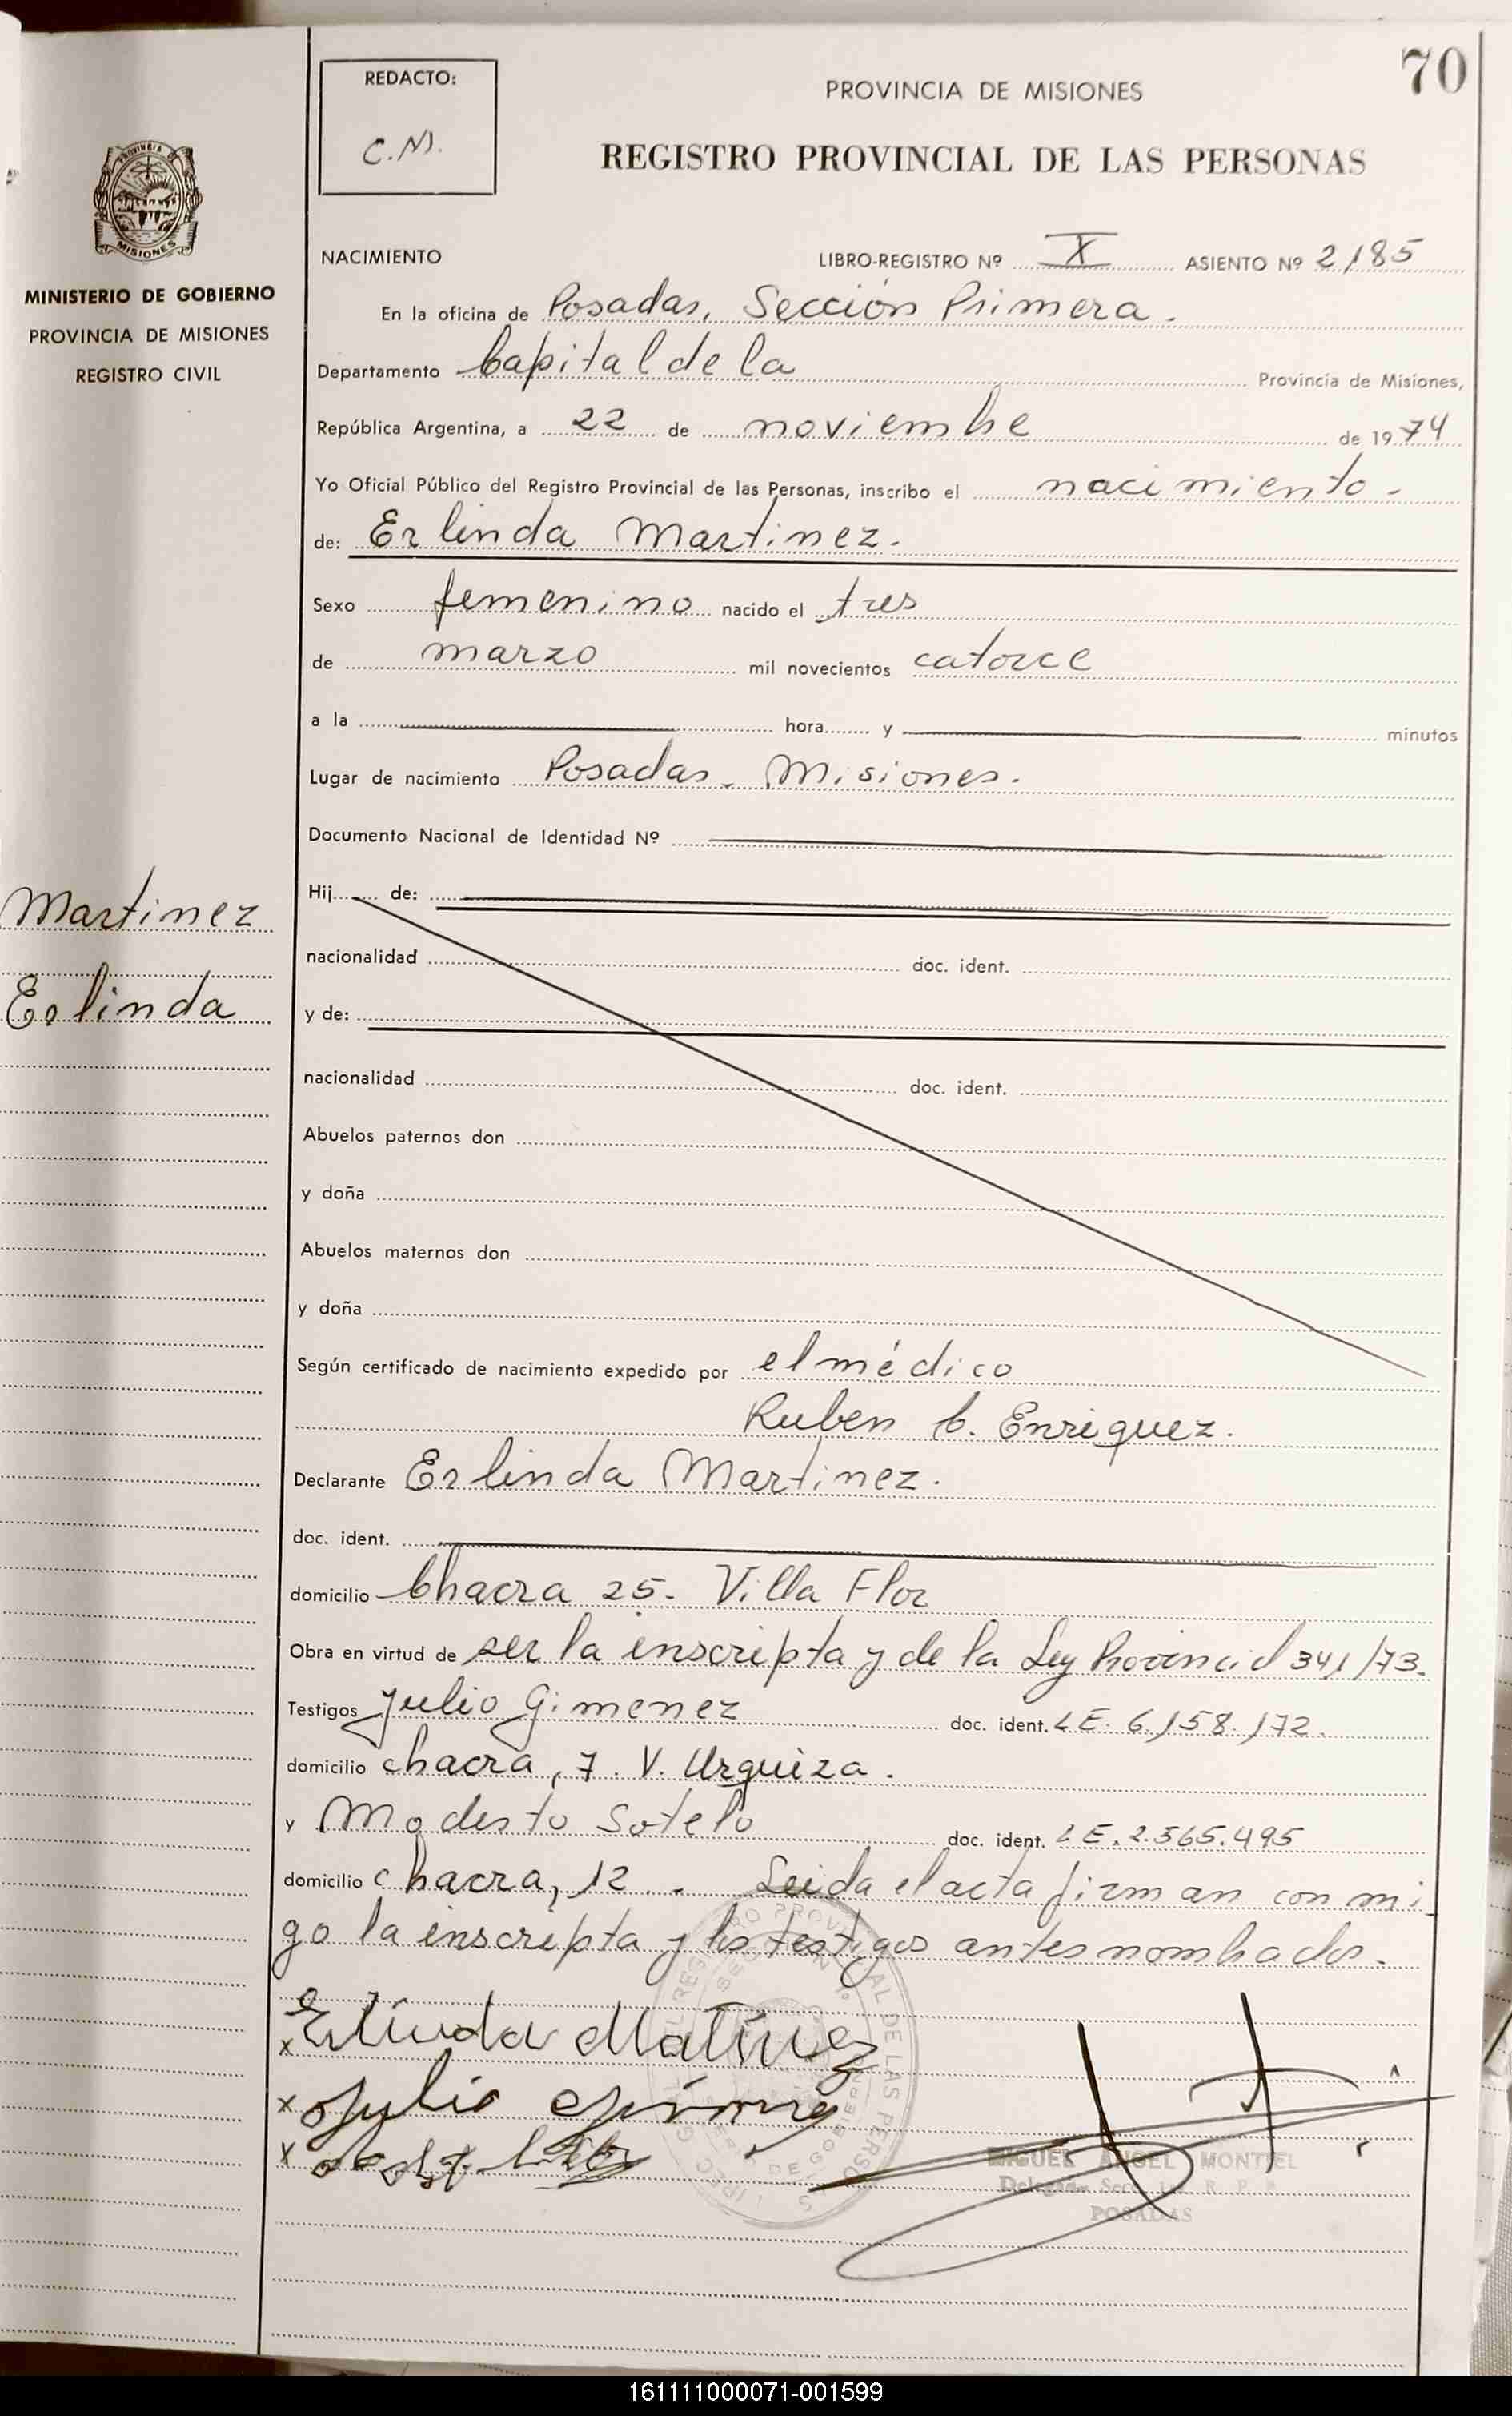 70
REDACTO:
C.M.
PROVINCIA DE MISIONES
REGISTRO PROVINCIAL DE LAS PERSONAS
MISIONES
MINISTERIO DE GOBIERNO
PROVINCIA DE MISIONES
REGISTRO CIVIL
NACIMIENTO LIBRO-REGISTRO Nº X ASIENTO Nº 2185
En la oficina de Posadas, Sección Primera.
Departamento Capital de la Provincia de Misiones,
República Argentina, a 22 de noviembre de 1974
Yo Oficial Público del Registro Provincial de las Personas, inscribo el nacimiento.
de: Erlinda Martinez.
Sexo femenino nacido el tres
de marzo mil novecientos catorce
a la hora y minutos
Lugar de nacimiento Posadas. Misiones.
Documento Nacional de Identidad Nº
Martinez
Erlinda
Hij de:
nacionalidad doc. ident.
y de:
nacionalidad doc. ident.
Abuelos paternos don
y doña
Abuelos maternos don
y doña
Según certificado de nacimiento expedido por el médico
Ruben C. Enriquez.
Declarante Erlinda Martinez.
doc. ident.
domicilio Chacra 25. Villa Flor
Obra en virtud de ser la inscripta y de la Ley Provincial 341/73.
Testigos Julio Gimenez doc. ident. LE. 6.158.172.
domicilio chacra, 7. V. Urquiza.
y Modesto Sotelo doc. ident. LE. 2.565.495
domicilio chacra, 12. Leida el acta firman con mi
go la inscripta y los testigos antes nombrados.
x Erlinda Matinez
x Julio
x
MIGUEL ANGEL MONTIEL
POSADAS
161111000071-001599